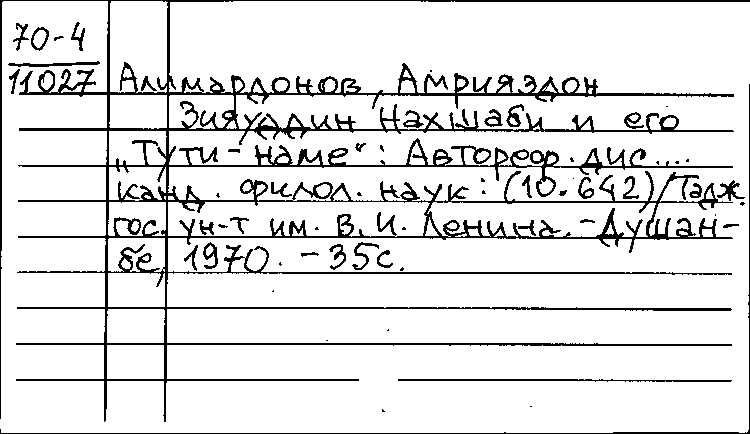 70-4
11027 Алимардонов, Амрияздон
Зияуддин Нахшаби и его
„Тути-наме“: Автореф. дис....
канд. филол. наук: (10.642)/Тадж.
гос. ун-т им. В.И. Ленина. -Душан-
бе, 1970. - 35с.